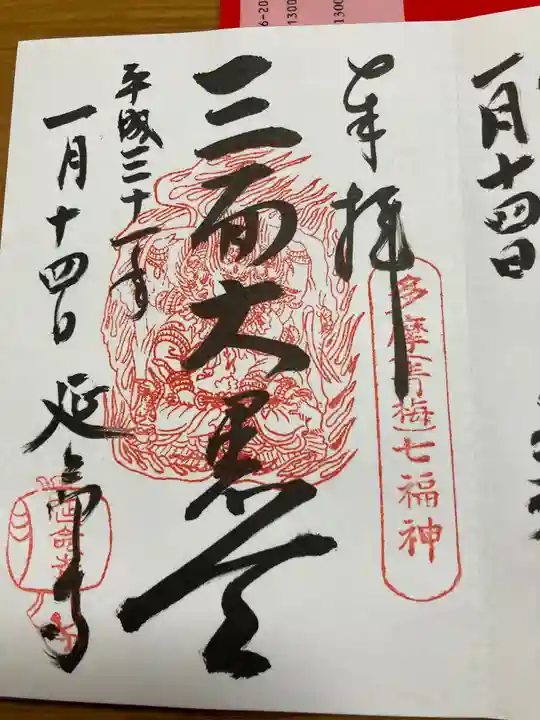 6-20
1300
1300
一月十四日
奉拝
多摩青梅七福神
三面大黒天
平成三十一年
一月十四日 延命寺
延命寺